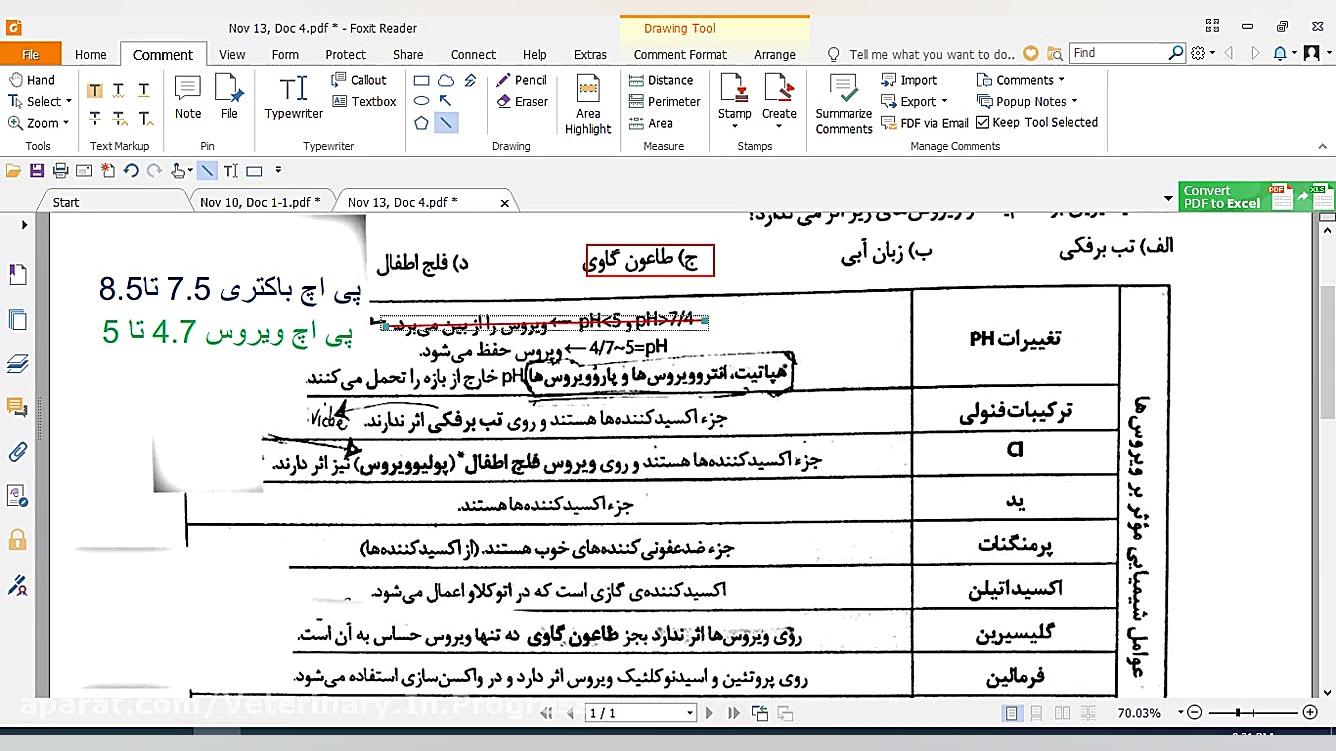 Nov 13, Doc 4.pdf * - Foxit Reader
Drawing Tool
File Home Comment View Form Protect Share Connect Help Extras Comment Format Arrange Tell me what you want to do.. Find
Hand
Select
Zoom
Tools
Text Markup
Note
File
Pin
Typewriter
Callout
Textbox
Typewriter
Pencil
Eraser
Drawing
Area Highlight
Distance
Perimeter
Area
Measure
Stamp
Create
Stamps
Summarize Comments
Import
Export
FDF via Email
Comments
Popup Notes
Keep Tool Selected
Manage Comments
Start
Nov 10, Doc 1-1.pdf *
Nov 13, Doc 4.pdf *
Convert
PDF to Excel
ویروس‌های زیر اثر می ندارد؟
الف) تب برفکی ب) زبان آبی ج) طاعون گاوی د) فلج اطفال
پی اچ باکتری 7.5 تا 8.5
پی اچ ویروس 4.7 تا 5
عوامل شیمیایی مؤثر بر ویروس‌ها
تغییرات PH
pH>7/4 و pH<5 ← ویروس را از بین می‌برد.
4/7~5=pH ← ویروس حفظ می‌شود.
هپاتیت، انتروویروس‌ها و پاروویروس‌ها pH خارج از بازه را تحمل می‌کنند.
ترکیبات فنولی
جزء اکسیدکننده‌ها هستند و روی تب برفکی اثر ندارند.
Cl
جزء اکسیدکننده‌ها هستند و روی ویروس فلج اطفال* (پولیوویروس) نیز اثر دارند.
ید
جزء اکسیدکننده‌ها هستند.
پرمنگنات
جزء ضدعفونی کننده‌های خوب هستند. (از اکسیدکننده‌ها)
اکسیداتیلن
اکسیدکننده‌ی گازی است که در اتوکلاو اعمال می‌شود.
گلیسیرین
روی ویروس‌ها اثر ندارد بجز طاعون گاوی که تنها ویروس حساس به آن است.
فرمالین
روی پروتئین و اسیدنوکلئیک ویروس اثر دارد و در واکسن‌سازی استفاده می‌شود.
aparat.com/Veterinary.In.Progress
1 / 1
70.03%